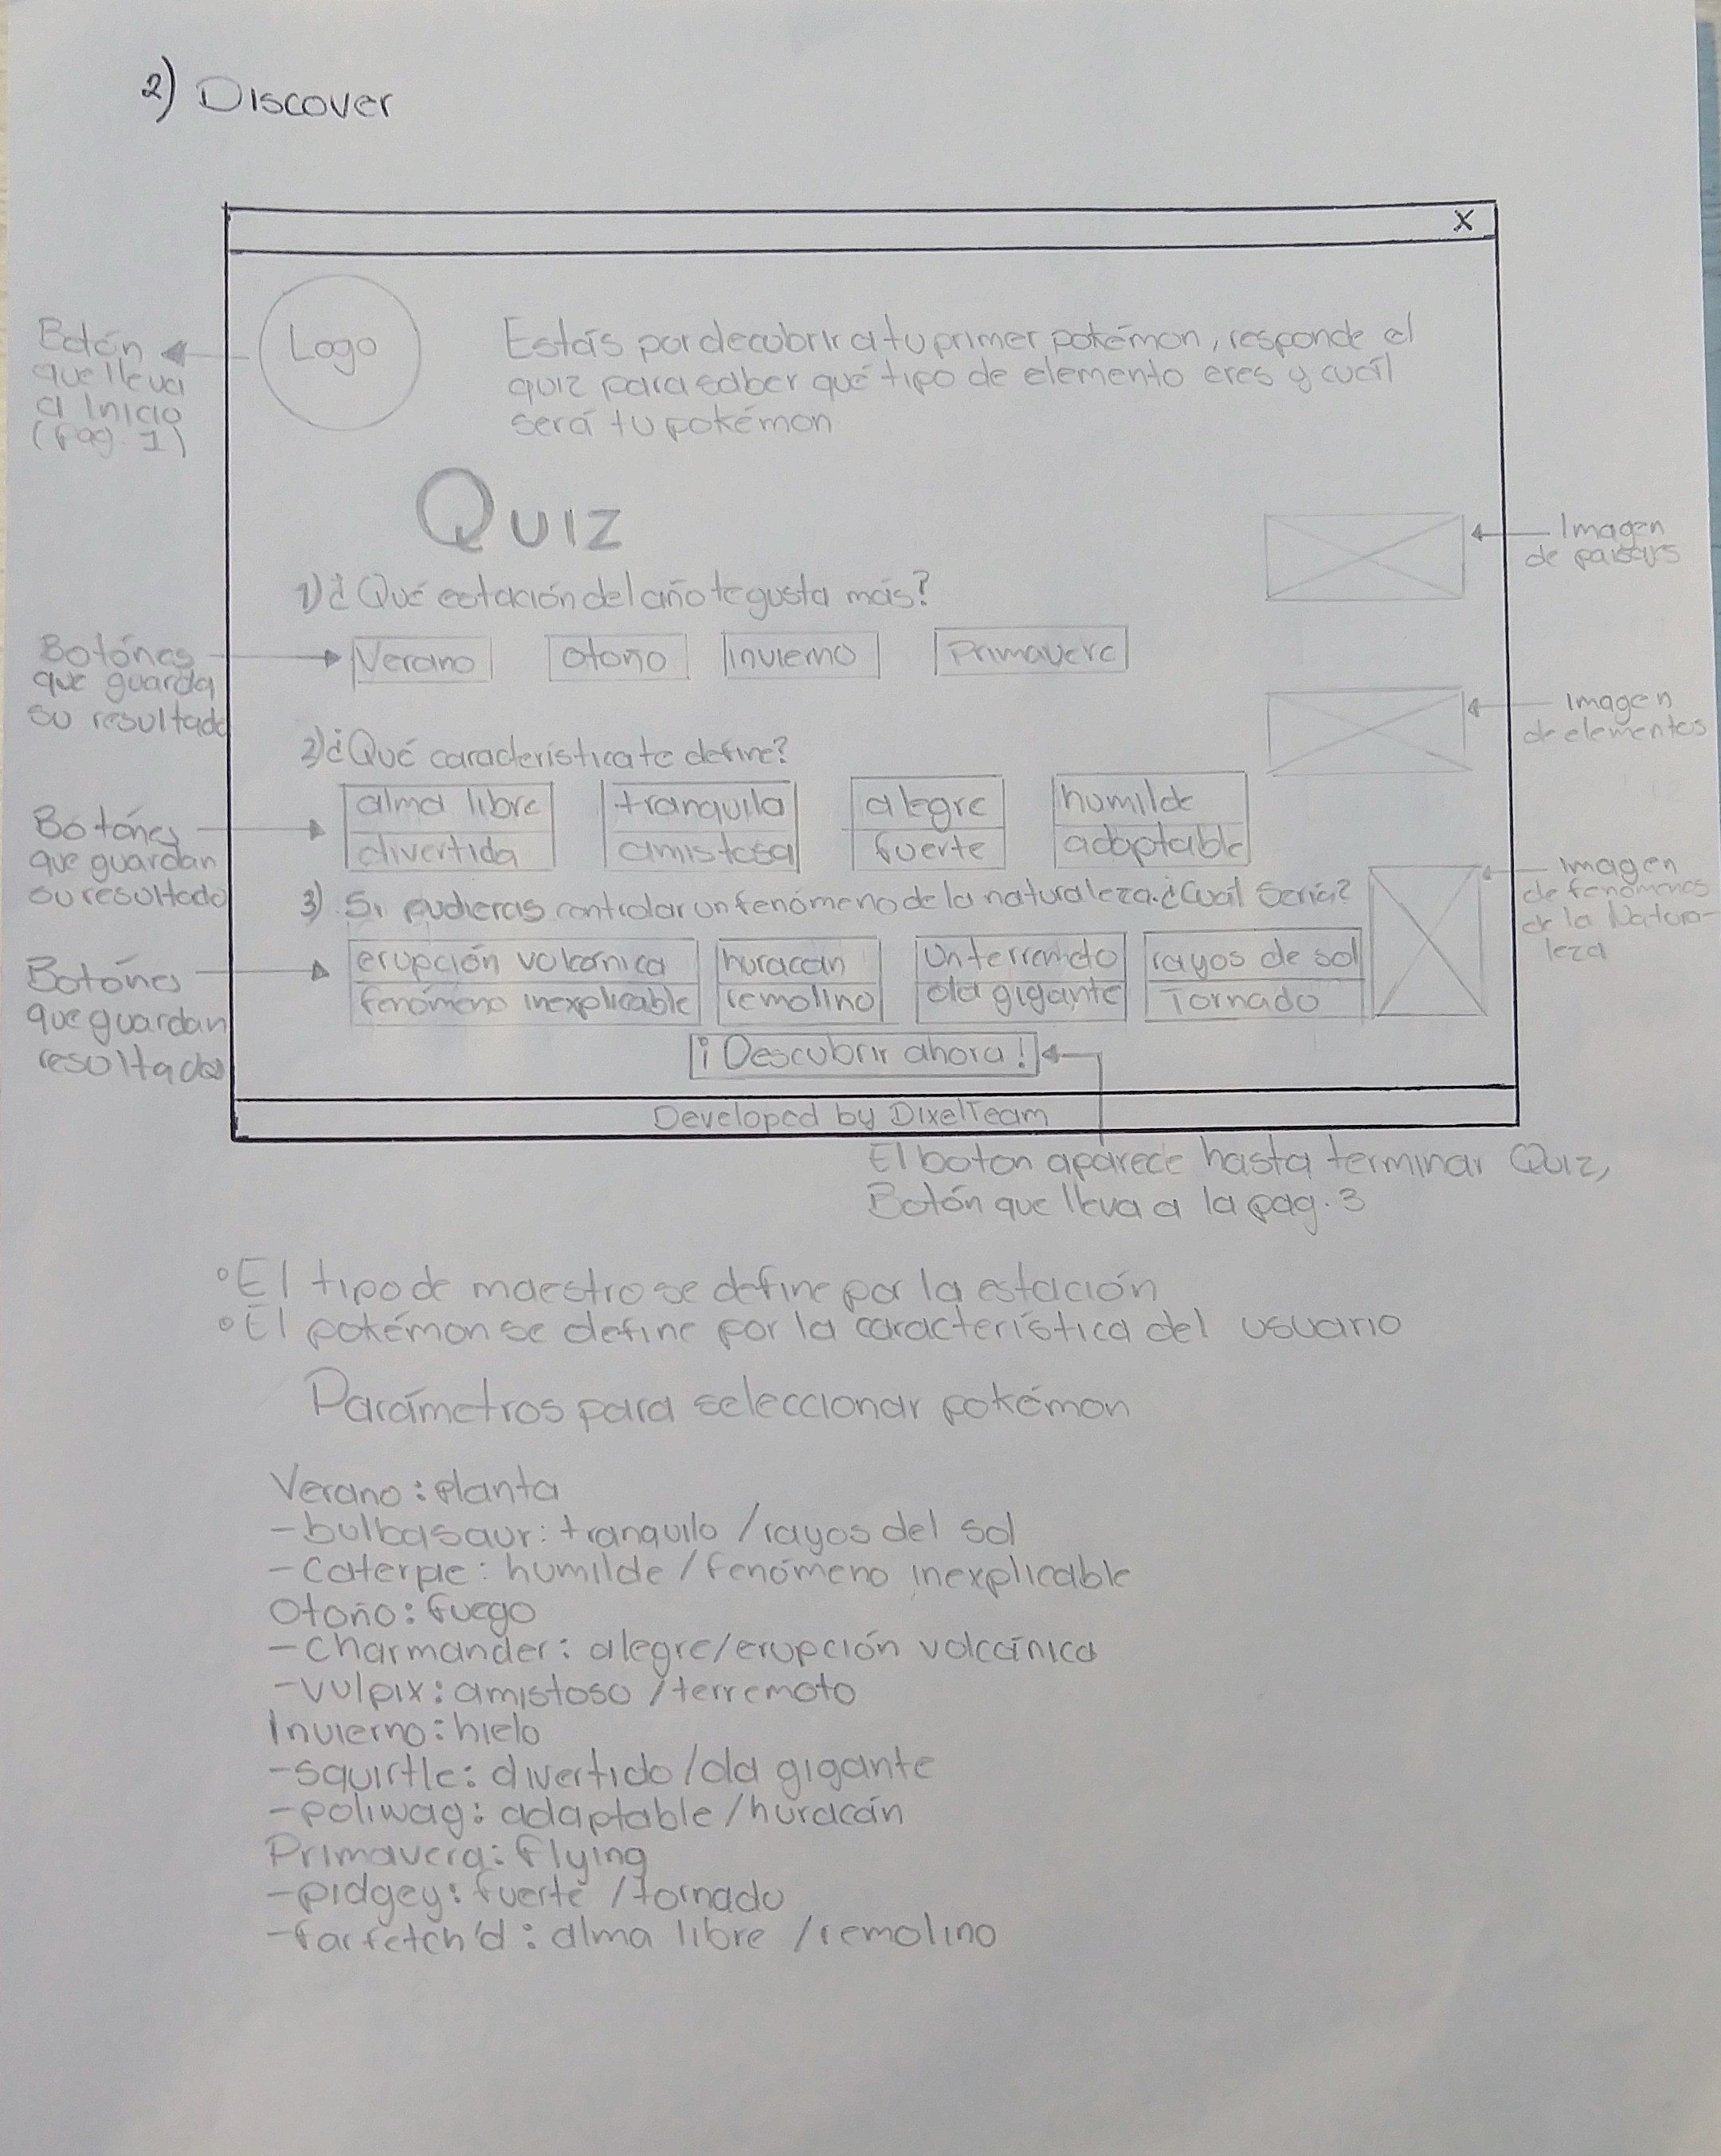 2) Discover
X
Logo
Botón
que lleva
a Inicio
(pag. 1)
Estás por decubrir a tu primer pokémon, responde el
quiz para saber qué tipo de elemento eres y cuál
será tu pokémon
Quiz
Imagen
de paisajs
1) ¿Qué estación del año te gusta más?
Botónes
que guarda
su resultado
Verano
otoño
invierno
Primavera
Imagen
de elementos
2) ¿Qué característica te define?
Botónes
que guardan
su resultado
alma libre
divertida
tranquila
amistosa
alegre
fuerte
humilde
adaptable
Imagen
de fenómenos
de la Natura-
leza
3) Si pudieras controlar un fenómeno de la naturaleza. ¿Cuál sería?
Botónes
que guardan
resultados
erupción volcánica
fenómeno inexplicable
huracán
remolino
Un terremoto
ola gigante
rayos de sol
Tornado
¡Descubrir ahora!
Developed by DixelTeam
El boton aparece hasta terminar Quiz,
Botón que lleva a la pag. 3
° El tipo de maestro se define por la estación
° El pokémon se define por la característica del usuario
Parámetros para seleccionar pokémon
Verano: planta
- bulbasaur: tranquilo / rayos del sol
- Caterpie: humilde / fenómeno inexplicable
Otoño: fuego
- Charmander: alegre/erupción volcánica
- vulpix: amistoso / terremoto
Invierno: hielo
- squirtle: divertido/ola gigante
- poliwag: adaptable / huracán
Primavera: flying
- pidgey: fuerte / tornado
- farfetch'd: alma libre / remolino